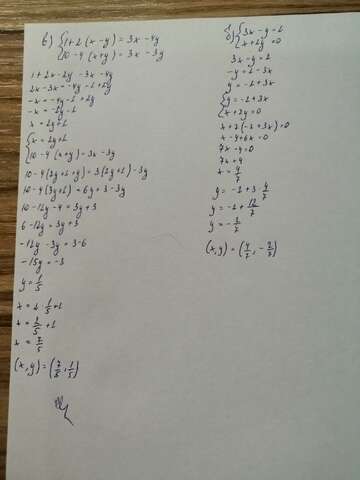 в) {1+2(x-y)=3x-4y
{10-4(x+y)=3x-3y
1+2x-2y=3x-4y
2x-3x=-4y-1+2y
-x=-4y-1+2y
-x=-2y-1
x=2y+1
{x=2y+1
{10-4(x+y)=3x-3y
10-4(2y+1+y)=3(2y+1)-3y
10-4(3y+1)=6y+3-3y
10-12y-4=3y+3
6-12y=3y+3
-12y-3y=3-6
-15y=-3
y=1/5
x=2·1/5+1
x=2/5+1
x=7/5
(x,y)=(7/5,1/5)
б) {3x-y=2
{x+2y=0
3x-y=2
-y=2-3x
y=-2+3x
{y=-2+3x
{x+2y=0
x+2(-2+3x)=0
x-4+6x=0
7x-4=0
7x=4
x=4/7
y=-2+3 4/7
y=-2+12/7
y=-2/7
(x,y)=(4/7,-2/7)